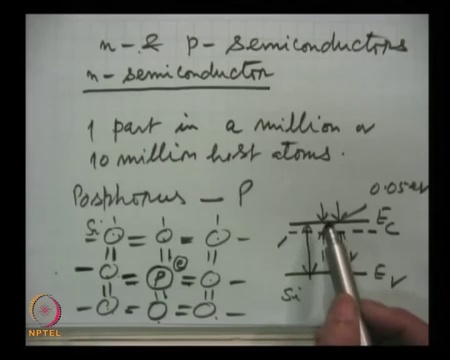 n- & p- semiconductors
n- semiconductor
1 part in a million or
10 million host atoms.
Posphorus — P
0.05 eV
Si
E_C
P
e
E_V
Si
NPTEL